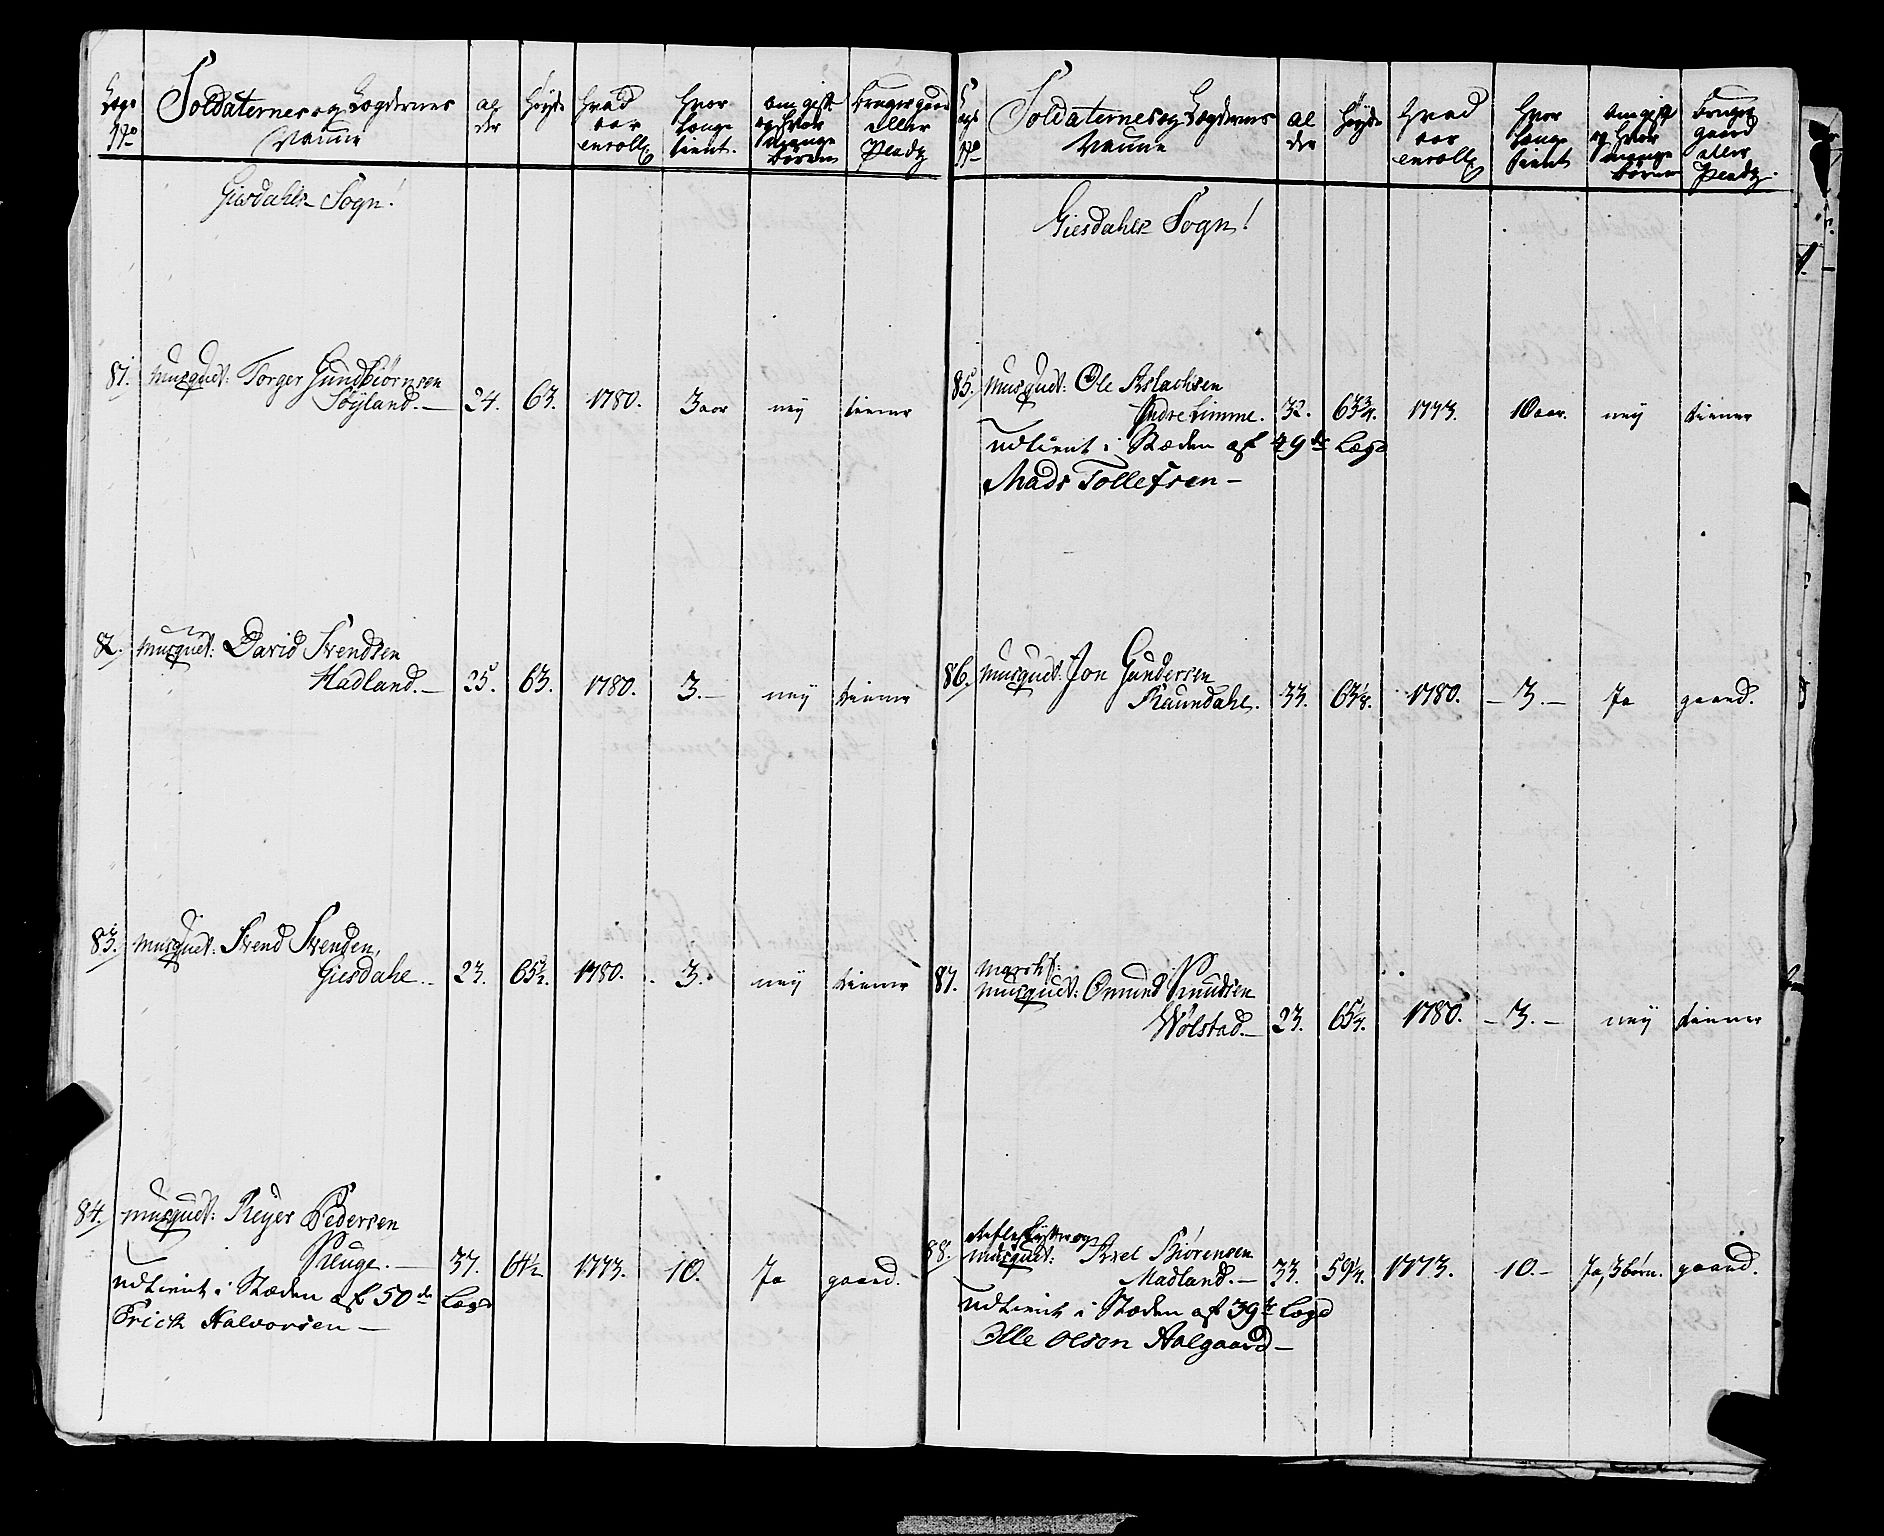 Lægs No | Soldaternes og Lægdernes Navne | al der | Høyde | hvad aar enroll | hvor længe tient. | om gift og hvor mange børn | bruger gaard eller Plads
Giesdahls Sogn!
87. musquet: Torger Gundbiørnsen
Søyland. — 24. 63. 1780. 3 aar ney tiener
82. musquet: David Svendsen
Madland. — 25. 63. 1780. 3. — ney tiener
83. musquet: Svend Svendsen,
Giesdahl. 23. 65½. 1780. 3. ney tiener
84. musquet: Reyer Pedersen
37. 64½ 1773. 10. Ja gaard.
udtient i Stæden af 50de Lægd
Erich Halvorsen —
Lægs No | Soldaternes og Lægdernes Navne | al der | Høyde | hvad aar enroll | hvor længe tient | om gift og hvor mange børn | bruger gaard eller Plads.
Giesdahls Sogn!
85. musquet: Ole Aslachsen
Indre Limme. 32. 63¾. 1773. 10 aar. ney tiener
udtient i Stæden af 49de Lægd
Mads Tollefsen —
86. musquet: Jon Gundersen
Raundahl. 33. 63⅛. 1780. — 3. — Ja gaard.
marchf:
87. musquet: Omund Knudsen
Wølstad. — 23. 65¼. 1780. — 3. — ney tiener
88. musquet: Axel Biørensen
Madland. — 33. 59¼. 1773. 10. — Ja, 3 børn. gaard.
udtient i Stæden af 39te Lægd
Olle Olson Aalgaard —